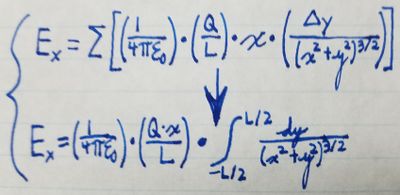 E_x = Σ[(1/4πε₀)·(Q/L)·x·(Δy/(x²+y²)^{3/2})]
↓
E_x = (1/4πε₀)·(Q·x/L)·∫_{-L/2}^{L/2} dy/(x²+y²)^{3/2}